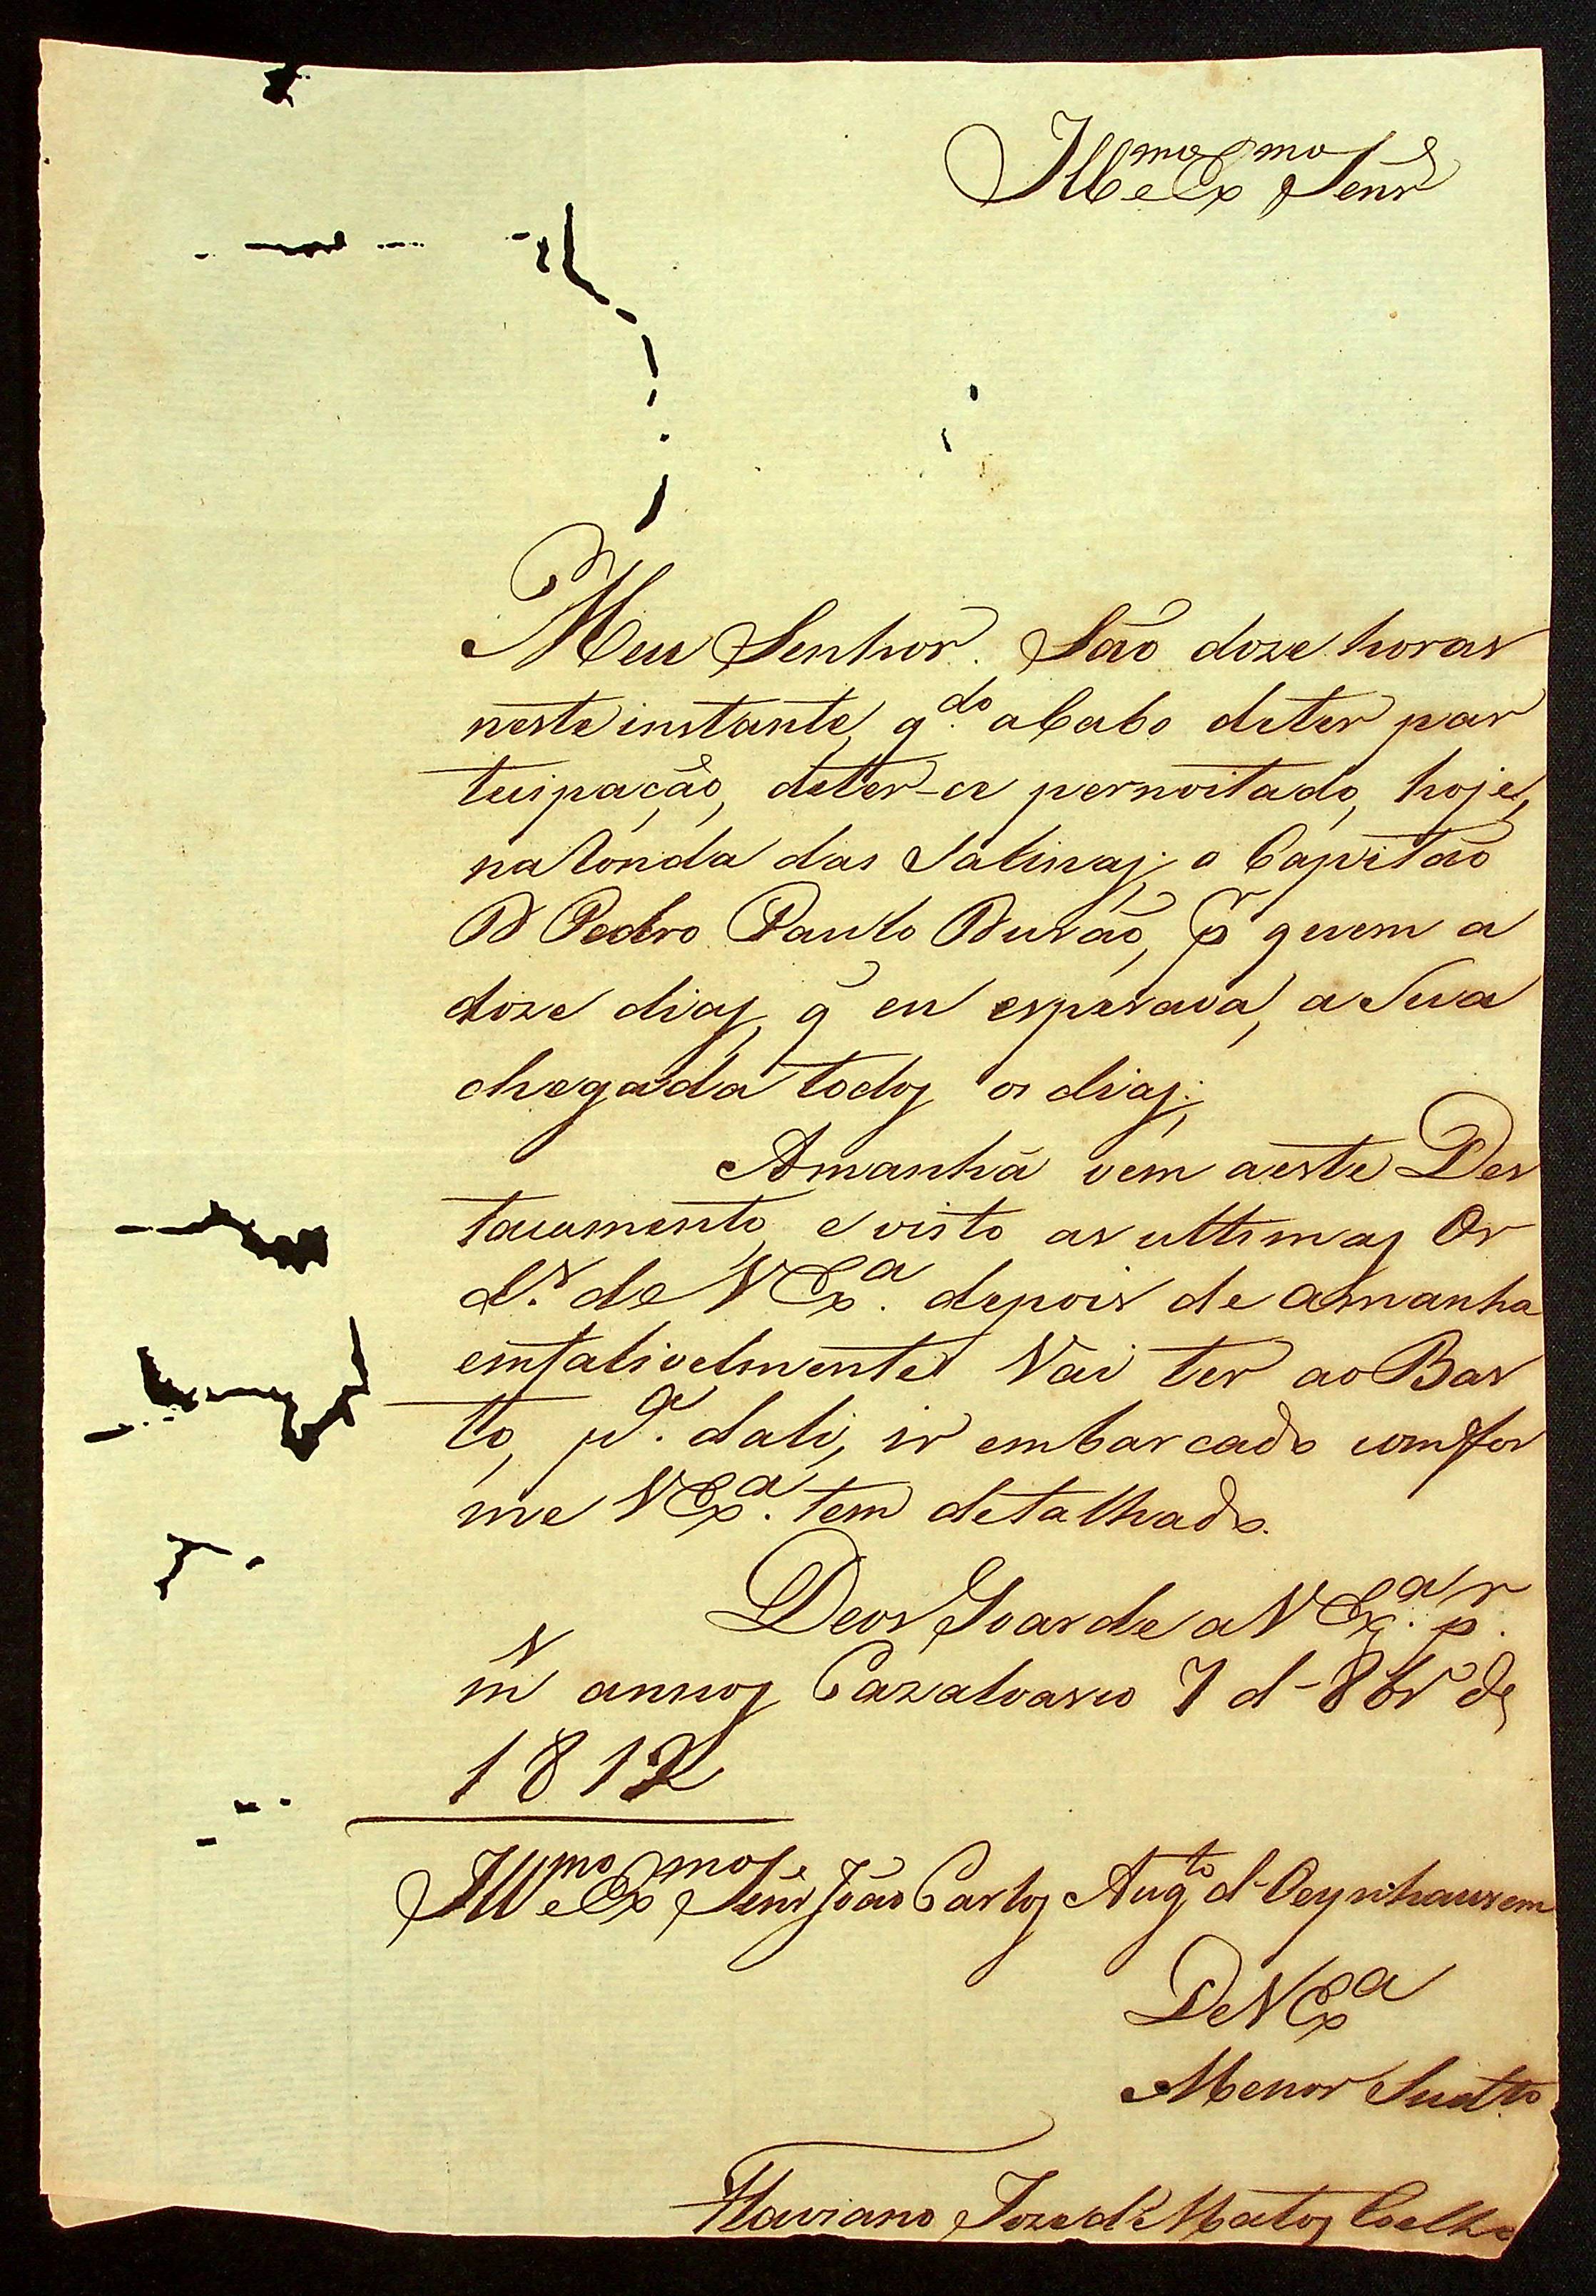 Ill.mo e Ex.mo Senr
Meu Senhor. São doze horas
neste instante, q.do acabo deter par
tecipação, deter-ce pernoitado, hoje,
na Conda das Salinas; o Capitão
D Pedro Paulo Durão, p.r quem a
doze dias, q̃ eu esperava, a Sua
chegada todos os dias;
Amanhã vem aeste Des
tacamento, e visto as ultimas Or
d.s de V Ex.a depois de amanha
emfalivelmente Vai ter ao Bas
to, p.a dali, ir embarcado comfor
me V Ex.a tem detalhado.
Deos Goarde a V Ex.a p.r
m.s annos Cazalvasco 7 d-8br.o de
1812
Ill.mo e Ex.mo Senr João Carlos Aug.to d-Oeynhausem
De V Ex.a
Menor Sudt.o
Flaviano Joze d' Matos Coelho